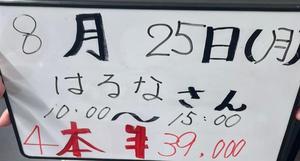 8月25日(月)
はるなさん
10:00〜15:00
4本 ¥39,000